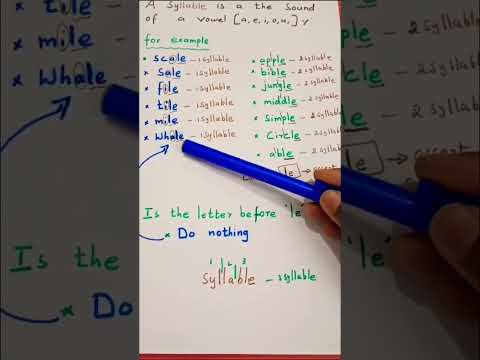 A Syllable is a the Sound
of a vowel [a, e, i, o, u,] y
for example
* scale - 1 syllable
* Sale - 1 syllable
* file - 1 syllable
* tile - 1 syllable
* mile - 1 syllable
* Whale - 1 syllable
* apple - 2 syllable
* bible - 2 syllable
* jungle - 2 syllable
* middle - 2 syllable
* simple - 2 syllable
* Circle - 2 syllable
* able - 2 syllable
le → accept
Is the letter before 'le'
* Do nothing
1 2 3
Syllable - 3 syllable